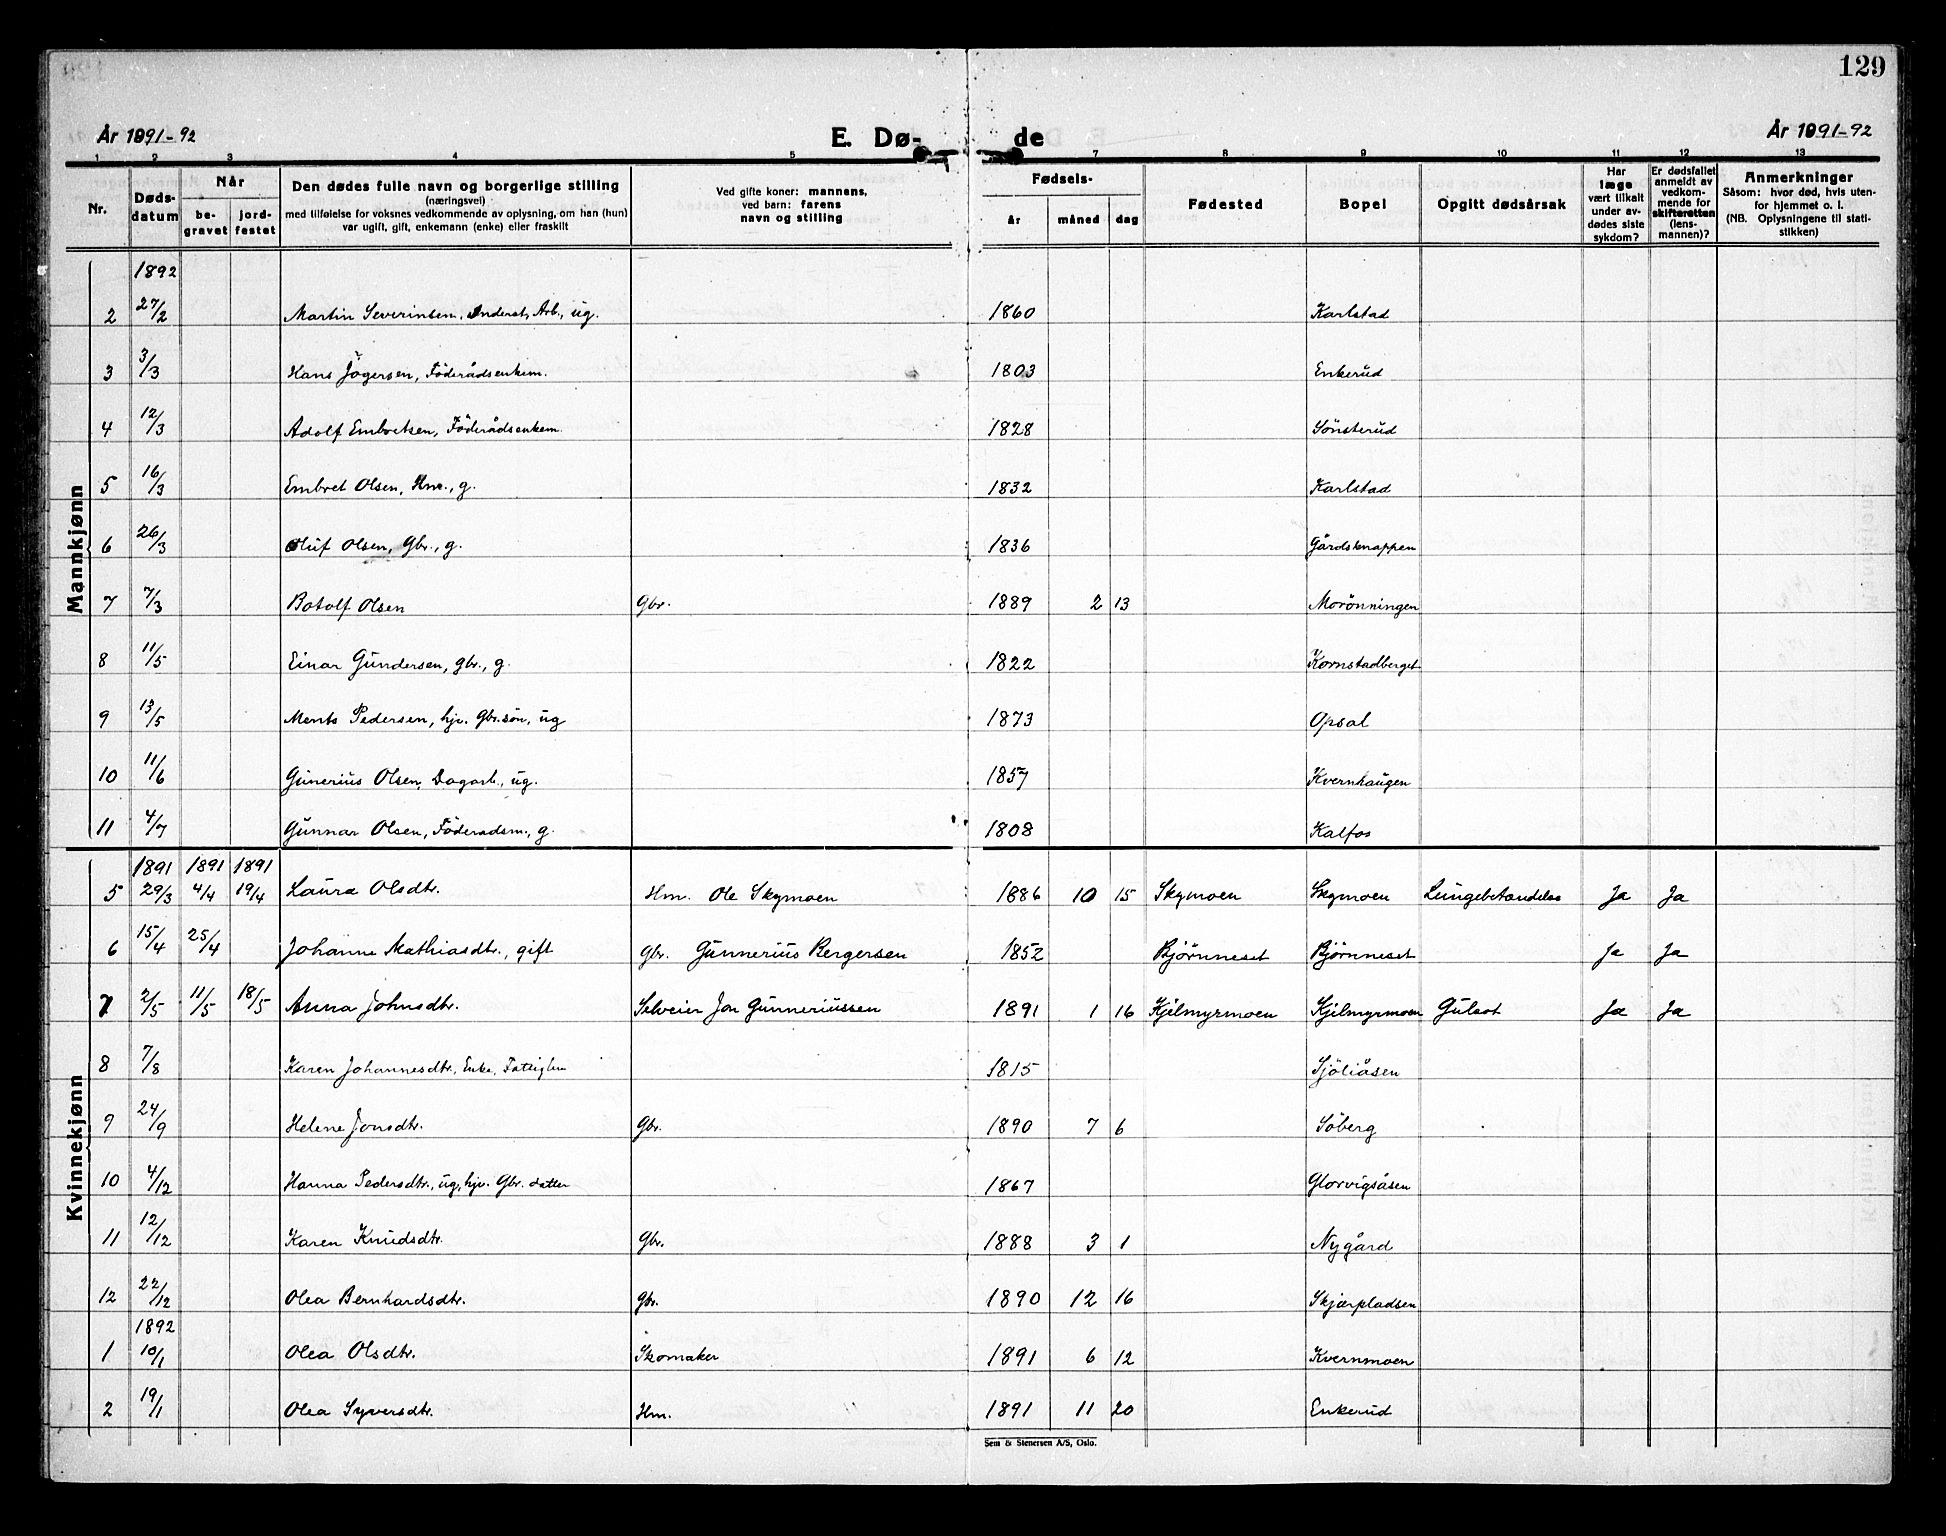 129
År 1891-92 E. Dø- de År 1891-92
1 2 3 4 5 7 8 9 10 11 12 13
Nr. Døds-datum Når be-gravet jord-festet Den dødes fulle navn og borgerlige stilling (næringsvei) med tilføielse for voksnes vedkommende av oplysning, om han (hun) var ugift, gift, enkemann (enke) eller fraskilt Ved gifte koner: mannens, ved barn: farens navn og stilling Fødsels- år måned dag Fødested Bopel Opgitt dødsårsak Har læge vært tilkalt under av-dødes siste sykdom? Er dødsfallet anmeldt av vedkom-mende for skifteretten (lens-mannen)? Anmerkninger Såsom: hvor død, hvis uten-for hjemmet o. l. (NB. Oplysningene til stati-stikken)
Mannkjønn
1892
2 27/2 Martin Severinsen, Arb., ug. 1860 Karlstad
3 3/3 Hans Jögersen, Föderådsenkem. 1803 Enkerud
4 12/3 Adolf Embretsen, Föderådsenkem. 1828 Sönsterud
5 16/3 Embret Olsen, Hm., g. 1832 Karlstad
6 26/3 Oluf Olsen, Gbr., g. 1836 Gårdsknappen
7 7/3 Botolf Olsen Gbr. 1889 2 13 Morönningen
8 11/5 Einar Gundersen, gbr., g. 1822 Kornstadberget
9 13/5 Ments Pedersen, hjv. Gbr.sön, ug 1873 Opsal
10 11/6 Gunerius Olsen, Dagarb., ug. 1857 Kvernhaugen
11 4/7 Gunnar Olsen, Föderadsm., g. 1808 Kalfos
Kvinnekjønn
1891 1891 1891
5 29/3 4/4 19/4 Laura Olsdtr. Hm. Ole Skymoen 1886 10 15 Skymoen Skymoen Lungebetændelse Ja Ja
6 15/4 25/4 Johanne Mathiasdtr., gift gbr. Gunnerius Bergersen 1852 Bjørnneset Bjørnneset Ja Ja
7 2/5 11/5 18/5 Anna Johnsdtr. Selveier Jon Gunneriussen 1891 1 16 Kjelmyrmoen Kjelmyrmoen Gulsot Ja Ja
8 7/8 Karen Johannesdtr., Enke, Fattiglem 1815 Sjöliåsen
9 24/9 Helene Jonsdtr. Gbr. 1890 7 6 Söberg
10 4/12 Hanna Pedersdtr., ug., hjv. Gbr. datter 1867 Glorvigsåsen
11 12/12 Karen Knudsdtr. Gbr. 1888 3 1 Nygård
12 22/12 Olea Bernhardsdtr. Gbr. 1890 12 16 Skjærpladsen
1892
1 10/1 Olea Olsdtr. Skomaker 1891 6 12 Kvernmoen
2 19/1 Olea Syversdtr. Hm. 1891 11 20 Enkerud
Sem & Stenersen A/S, Oslo.